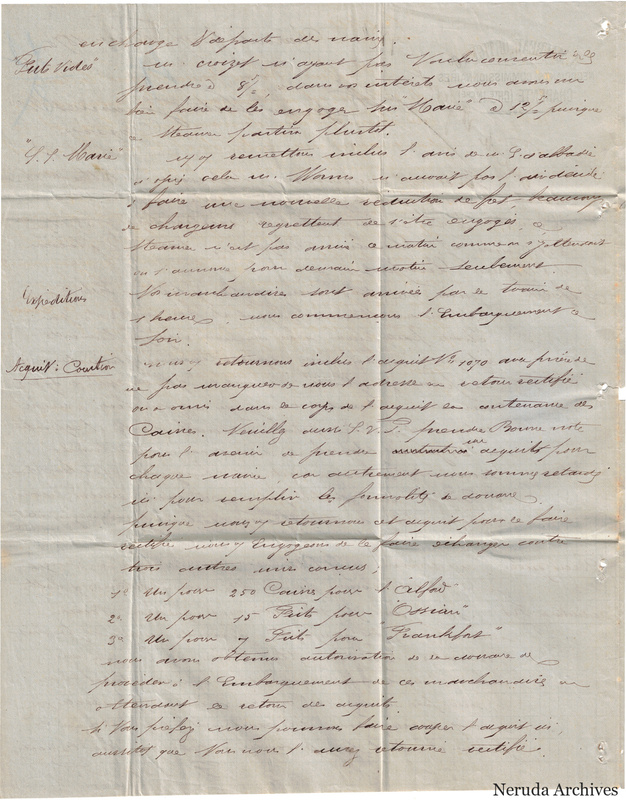 en charge & départ des navires.
"Futs Vides" M. Croizet n'ayant pas Voulu consentir à
prendre à 8/½, dans vos intérêts nous avons cru
bien faire de les engager sur Marie à 12/½ puisque
ce steamer partira plutot.
"S. S. Marie" n/ v/ remettons inclus l'avis de M. G. d'abbadie
après cela M. Worms n'aurait pas l'
faire une nouvelle réduction de fret, beaucoup
de chargeurs regrettent de s'être engagés, ce
steamer n'est pas arrivé ce matin comme on s'y attendait
on l'annonce pour demain matin seulement
Expéditions Vos marchandises sont arrivées par le train de
1 heure, nous commencerons l'Embarquement ce
soir.
Acquit: Courtion nous v/ retournons inclus l'acquit No 1070 avec prière de
ne pas manquer de nous l'adresser en retour rectifié
on a omis dans le corps de l'acquit la contenance des
Caisses. Veuillez aussi S.V.P. prendre Bonne note
pour l'avenir de prendre une acquits pour
chaque navire, car autrement nous sommes retardés
ici pour remplir les formalités de douane
puisque nous v/ retournons cet acquit pour le faire
rectifier nous v/ Engageons de le faire échanger contre
trois autres ainsi conçus,
1o Un pour 250 Caisses pour l'"Alford"
2o Un pour 15 Futs pour "Ossian"
3o Un pour 7 Futs pour "Frankfort"
nous avons obtenu autorisation de la douane de
procéder à l'Embarquement de ces marchandises en
attendant le retour des acquits.
Si Vous préférez nous pourrons faire couper l'acquit ici
aussitot que Vous nous l'aurez retourné rectifié.
Neruda Archives